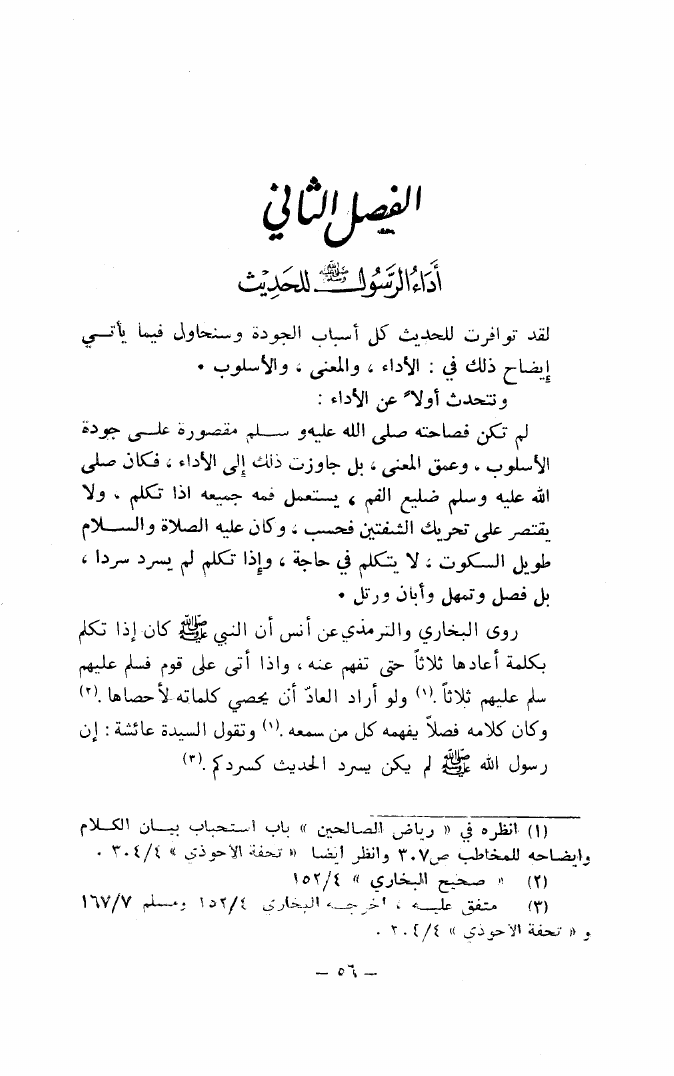 الفصل الثاني
أَدَاءُ الرَّسُولِ ﷺ لِلحَدِيْث
لقد توافرت للحديث كل أسباب الجودة وسنحاول فيما يأتــي
إيضاح ذلك في : الأداء ، والمعنى ، والأسلوب .
ونتحدث أولاً عن الأداء :
لم تكن فصاحته صلى الله عليه و سلم مقصورة علــى جودة
الأسلوب . وعمق المعنى ، بل جاوزت ذلك إلى الأداء ، فكان صلى
الله عليه وسلم ضليع الفم ، يستعمل فمه جميعه اذا تكلم . ولا
يقتصر على تحريك الشفتين فحسب ، وكان عليه الصلاة والســلام
طويل السكوت ، لا يتكلم في حاجة ، وإذا تكلم لم يسرد سردا ،
بل فصل وتمهل وأبان ورتل .
روى البخاري والترمذي عن أنس أن النبي ﷺ كان إذا تكلم
بكلمة أعادها ثلاثاً حتى تفهم عنه ، واذا أتى على قوم فسلم عليهم
سلم عليهم ثلاثاً .(١) ولو أراد العادّ أن يحصي كلماته لأحصاها .(٢)
وكان كلامه فصلاً يفهمه كل من سمعه .(١) وتقول السيدة عائشة : إن
رسول الله ﷺ لم يكن يسرد الحديث كسردكم .(٣)
(١) انظره في « رياض الصالحين » باب استحباب بيــان الكــلام
وايضاحه للمخاطب ص٣٠٧ وانظر أيضا « تحفة الاحوذي » ٣٠٤/٤ .
(٢) « صحيح البخاري » ١٥٢/٤
(٣) متفق عليــه ، اخرجــه البخاري ١٥٢/٤ ومسلم ١٦٧/٧
و « تحفة الاحوذي » ٢٠٤/٤ .
— ٥٦ —